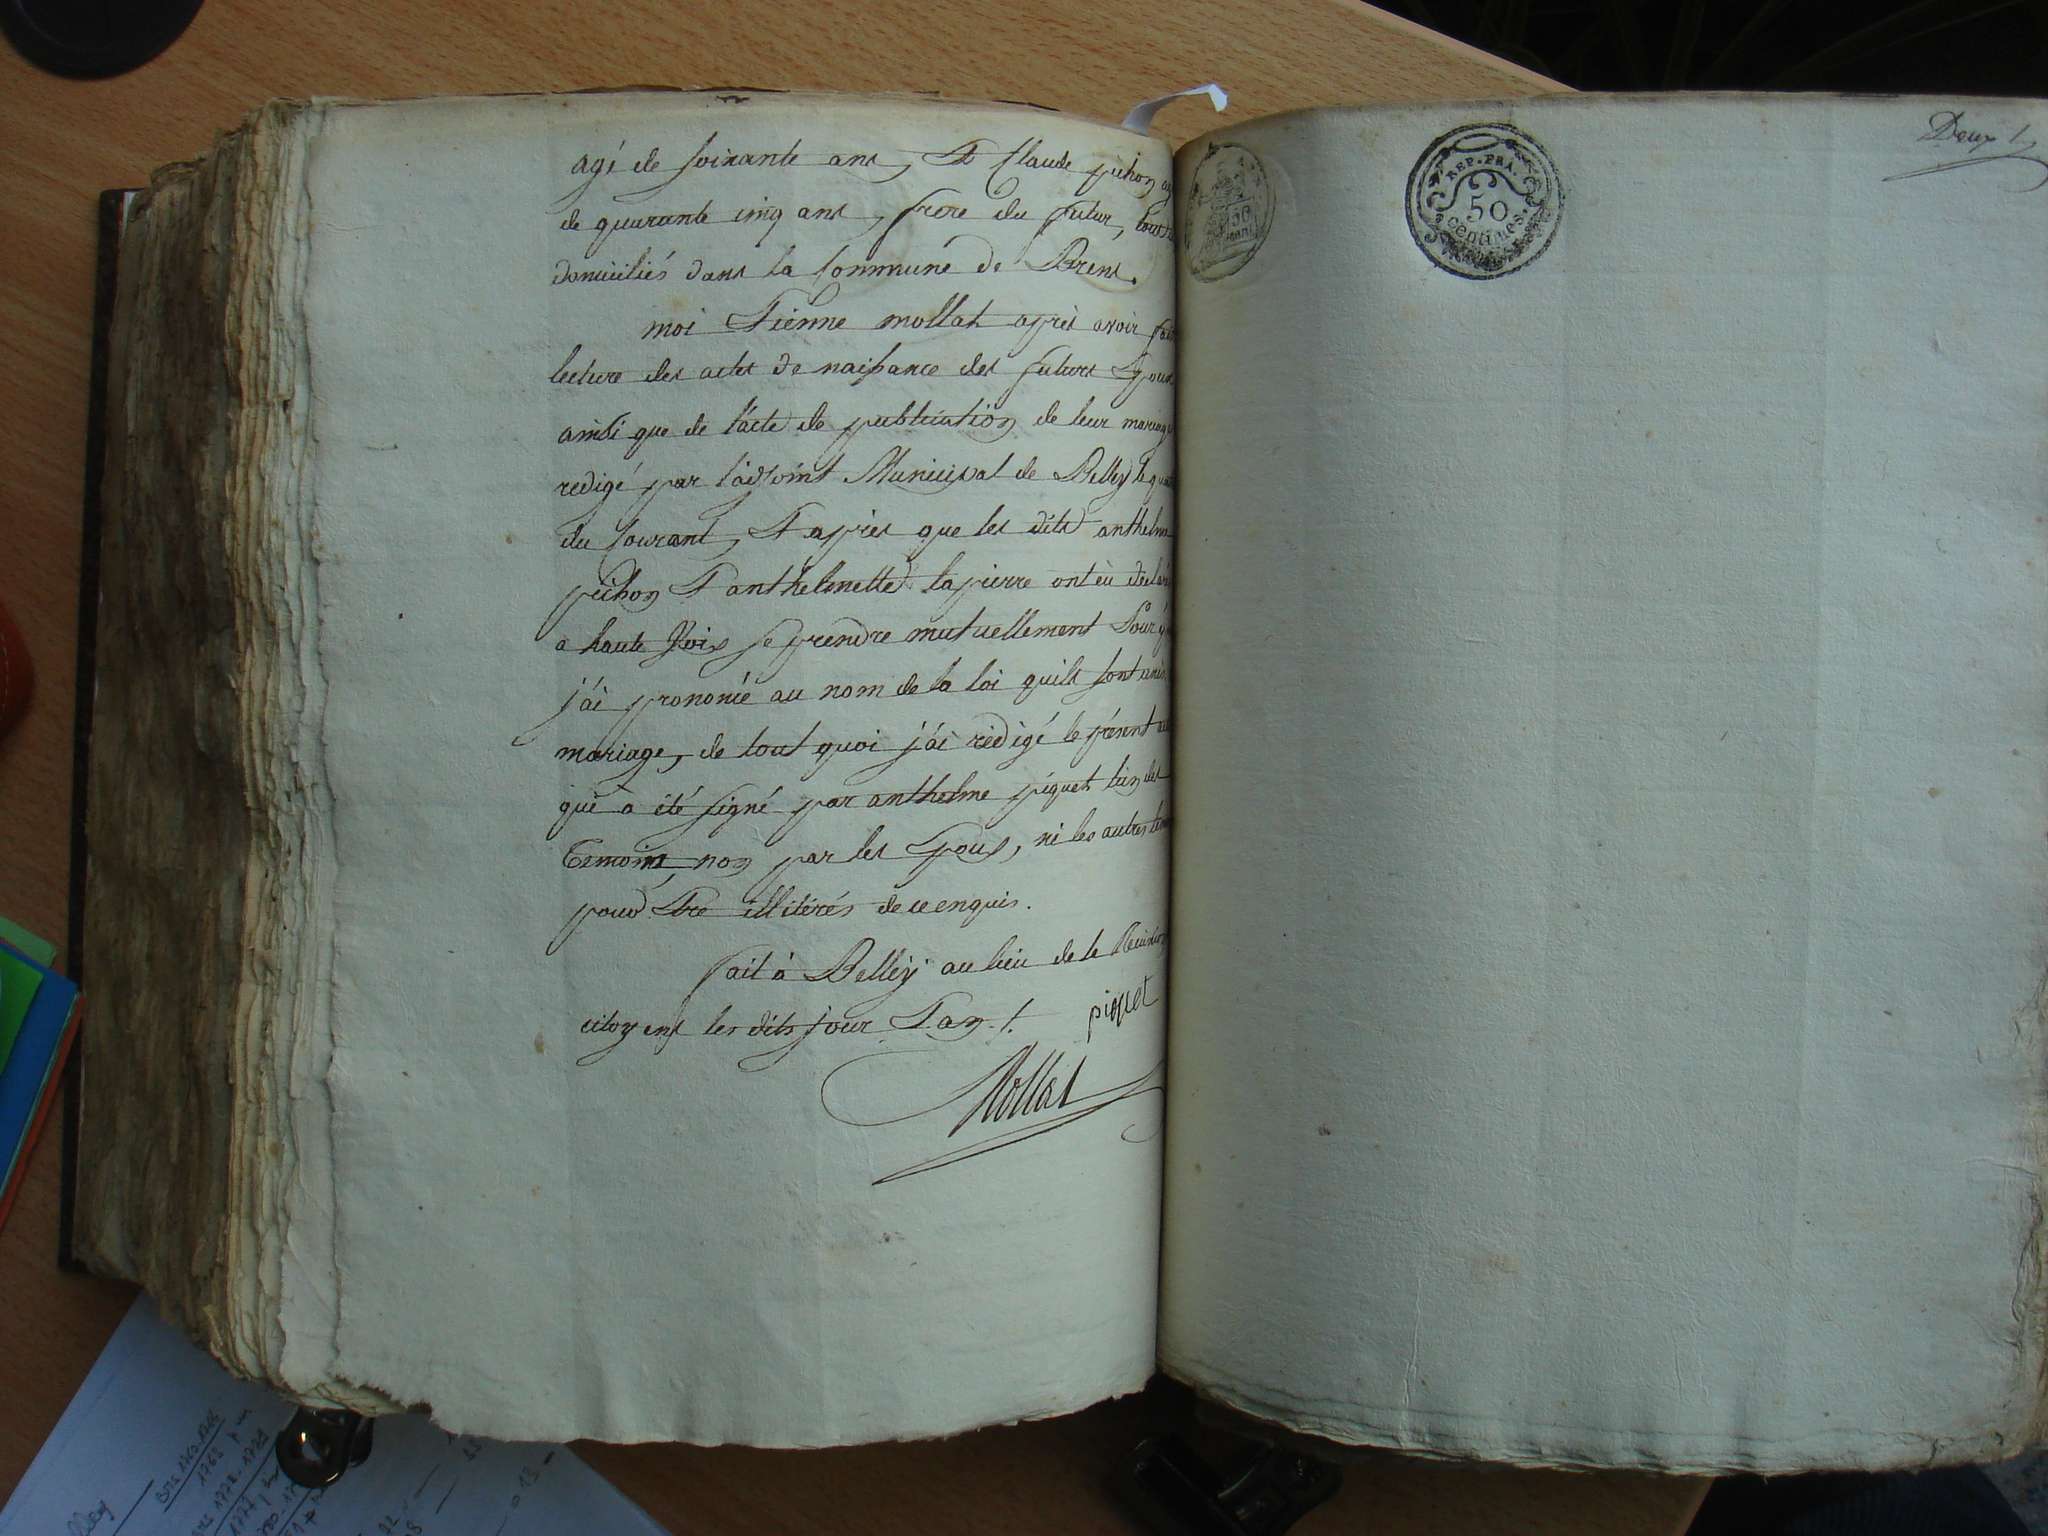 agé de soixante ans, Et Claude pichon agé
de quarante cinq ans, frere du futur, tous
domiciliés dans la Commune de Brens.
moi Etienne mollat après avoir fait
lecture des actes de naissance des futurs Epoux
ainsi que de l'acte de publication de leur mariage
redigé par l'adjoint Municipal de Belley le
du Courant, Et après que les dits anthelme
pichon Et anthelmette lapierre ont èu déclaré
a haute Voix se prendre mutuellement Pour
j'ai prononcé au nom de la loi quils sont unis
mariage, de tout quoi j'ai rédigé le présent
qui à été signé par anthelme piquet l'un des
Temoins, non par les Epoux, ni les autres
pour Etre illitérés de ce enquis.
fait à Belley au lieu de la Reunion
citoyens les dits jour Et an ./.
piquet
Mollat
REP. FRA.
50
centimes
50
Deux